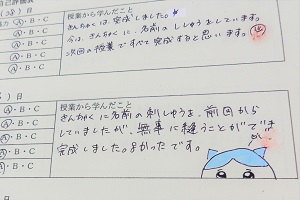 自己評価
(28) 日
授業から学んだこと
Ⓐ・B・C
きんちゃくは完成しました。
Ⓐ・B・C
今は、きんちゃくに、名前のししゅうをしています。
Ⓐ・B・C
次回の授業ですべて完成すると思います。
Ⓐ・B・C
) 日
授業から学んだこと
Ⓐ・B・C
きんちゃくに名前の刺しゅうを、前回から
Ⓐ・B・C
していましたが、無事に縫うことができ
Ⓐ・B・C
完成しました。よかったです。
Ⓐ・B・C
日